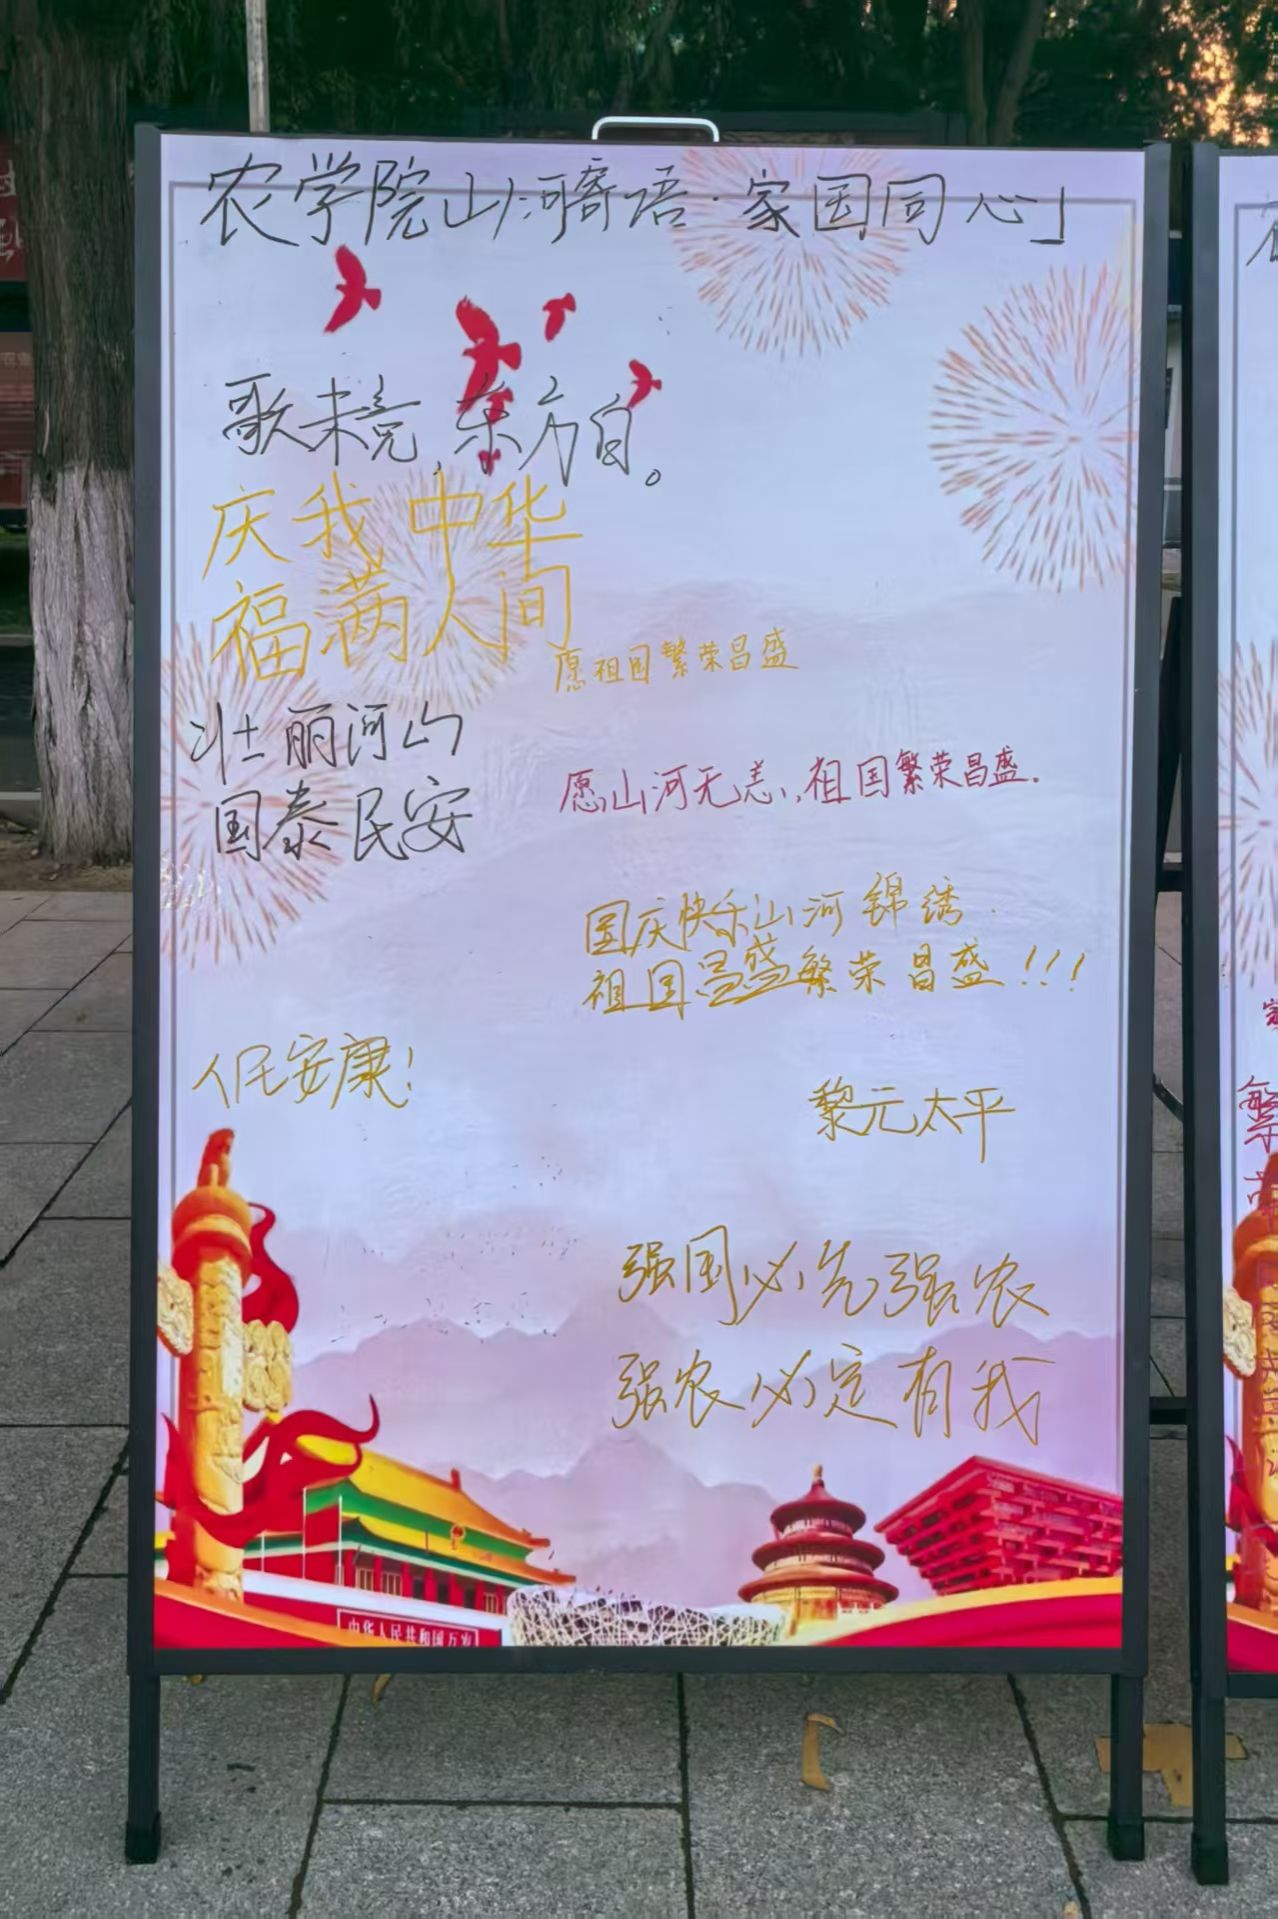 农学院山河寄语·家国同心」
歌未竟,东方白。
庆我中华
福满人间
愿祖国繁荣昌盛
壮丽河山
国泰民安
愿山河无恙,祖国繁荣昌盛.
国庆快乐山河锦绣.
祖国昌盛繁荣昌盛!!!
人民安康!
黎元太平
强国必先强农
强农必定有我
中华人民共和国万岁
繁